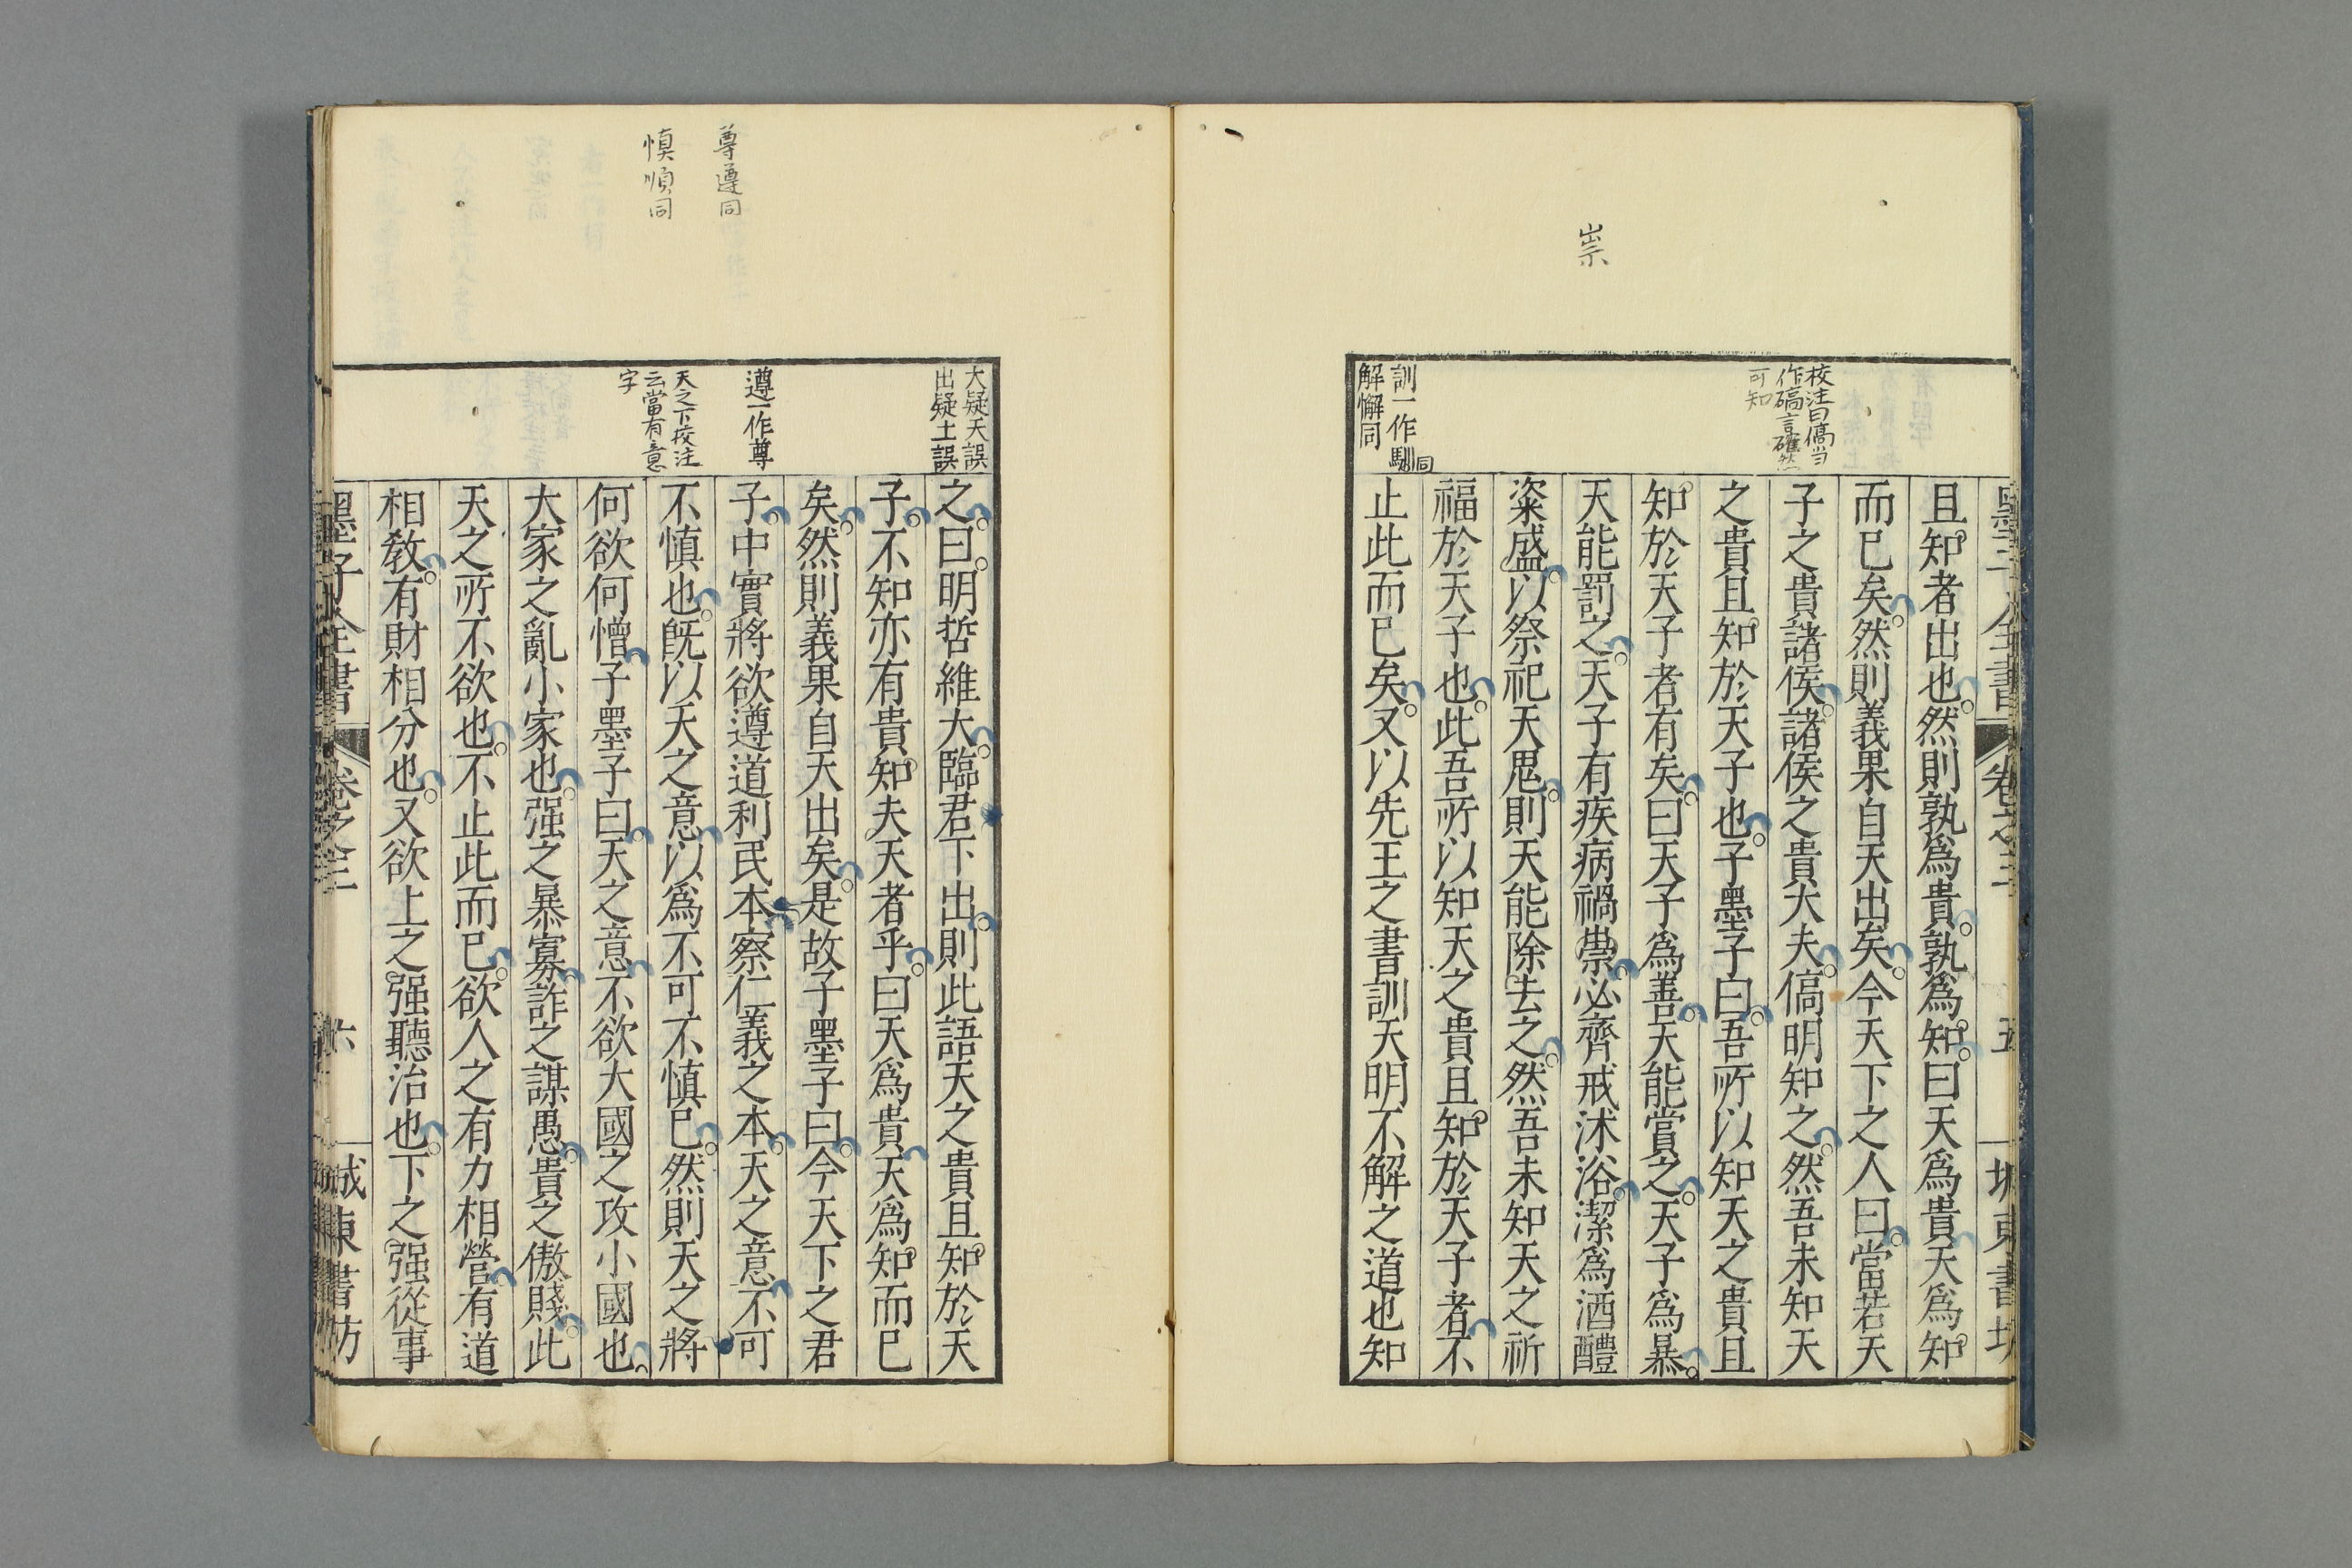 崇
校注曰傐当
作碻言確然
可知
訓一作馴同
解懈同
墨子全書 卷之三 五 城東書坊
且知者出也然則孰爲貴孰爲知曰天爲貴天爲知
而已矣然則義果自天出矣今天下之人曰當若天
子之貴諸侯諸侯之貴大夫傐明知之然吾未知天
之貴且知於天子也子墨子曰吾所以知天之貴且
知於天子者有矣曰天子爲善天能賞之天子爲暴
天能罰之天子有疾病禍祟必齊戒沐浴潔爲酒醴
粢盛以祭祀天鬼則天能除去之然吾未知天之祈
福於天子也此吾所以知天之貴且知於天子者不
止此而已矣又以先王之書訓天明不解之道也知
尊遵同
慎順同
大疑天誤
出疑土誤
遵一作尊
天之下校注
云當有意
字
之曰明哲維大臨君下出則此語天之貴且知於天
子不知亦有貴知夫天者乎曰天爲貴天爲知而已
矣然則義果自天出矣是故子墨子曰今天下之君
子中實將欲遵道利民本察仁義之本天之意不可
不慎也旣以天之意以爲不可不慎已然則天之將
何欲何憎子墨子曰天之意不欲大國之攻小國也
大家之亂小家也强之暴寡詐之謀愚貴之傲賤此
天之所不欲也不止此而已欲人之有力相營有道
相敎有財相分也又欲上之强聽治也下之强從事
墨子全書 卷之三 六 城東書坊